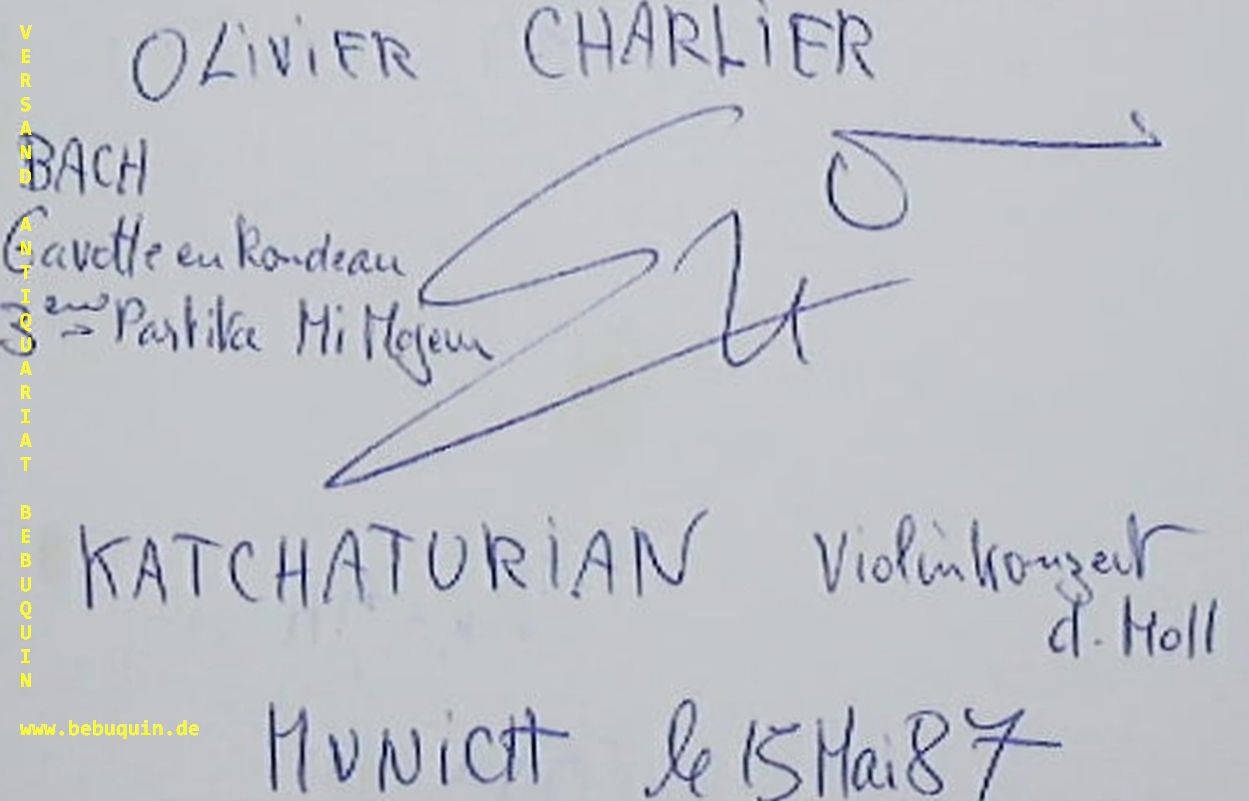 OLiViER CHARLiER
BACH
Gavotte en Rondeau
3eme Partita Mi Majeur
KATCHATURiAN Violinkonzert
d. Moll
MUNiCH le 15 Mai 87
VERSAND ANTIQUARIAT BEBUQUIN
www.bebuquin.de